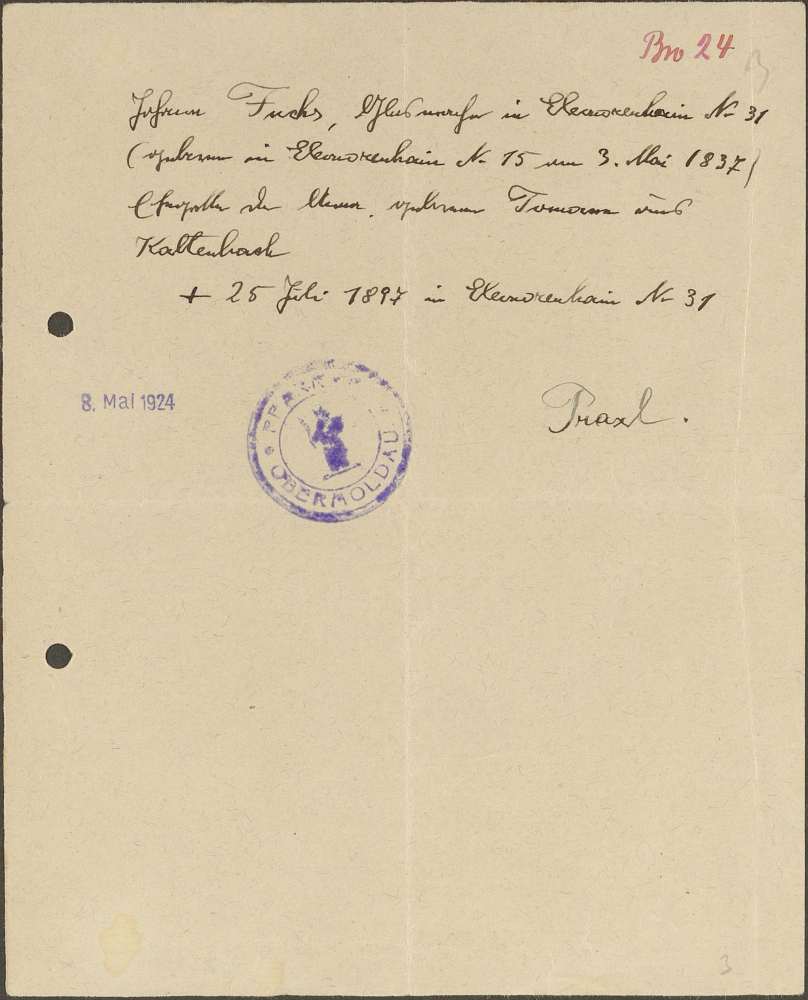 Bro 24
Johann Fuchs, Glasmacher in Eleonorenhain N. 31
(geboren in Eleonorenhain N. 15 am 3. Mai 1837)
Ehegatte der Anna, geborene Tomann aus
Kaltenbach
+ 25 Juli 1897 in Eleonorenhain N. 31
8. Mai 1924
OBERMOLDAU
Praxl.
3